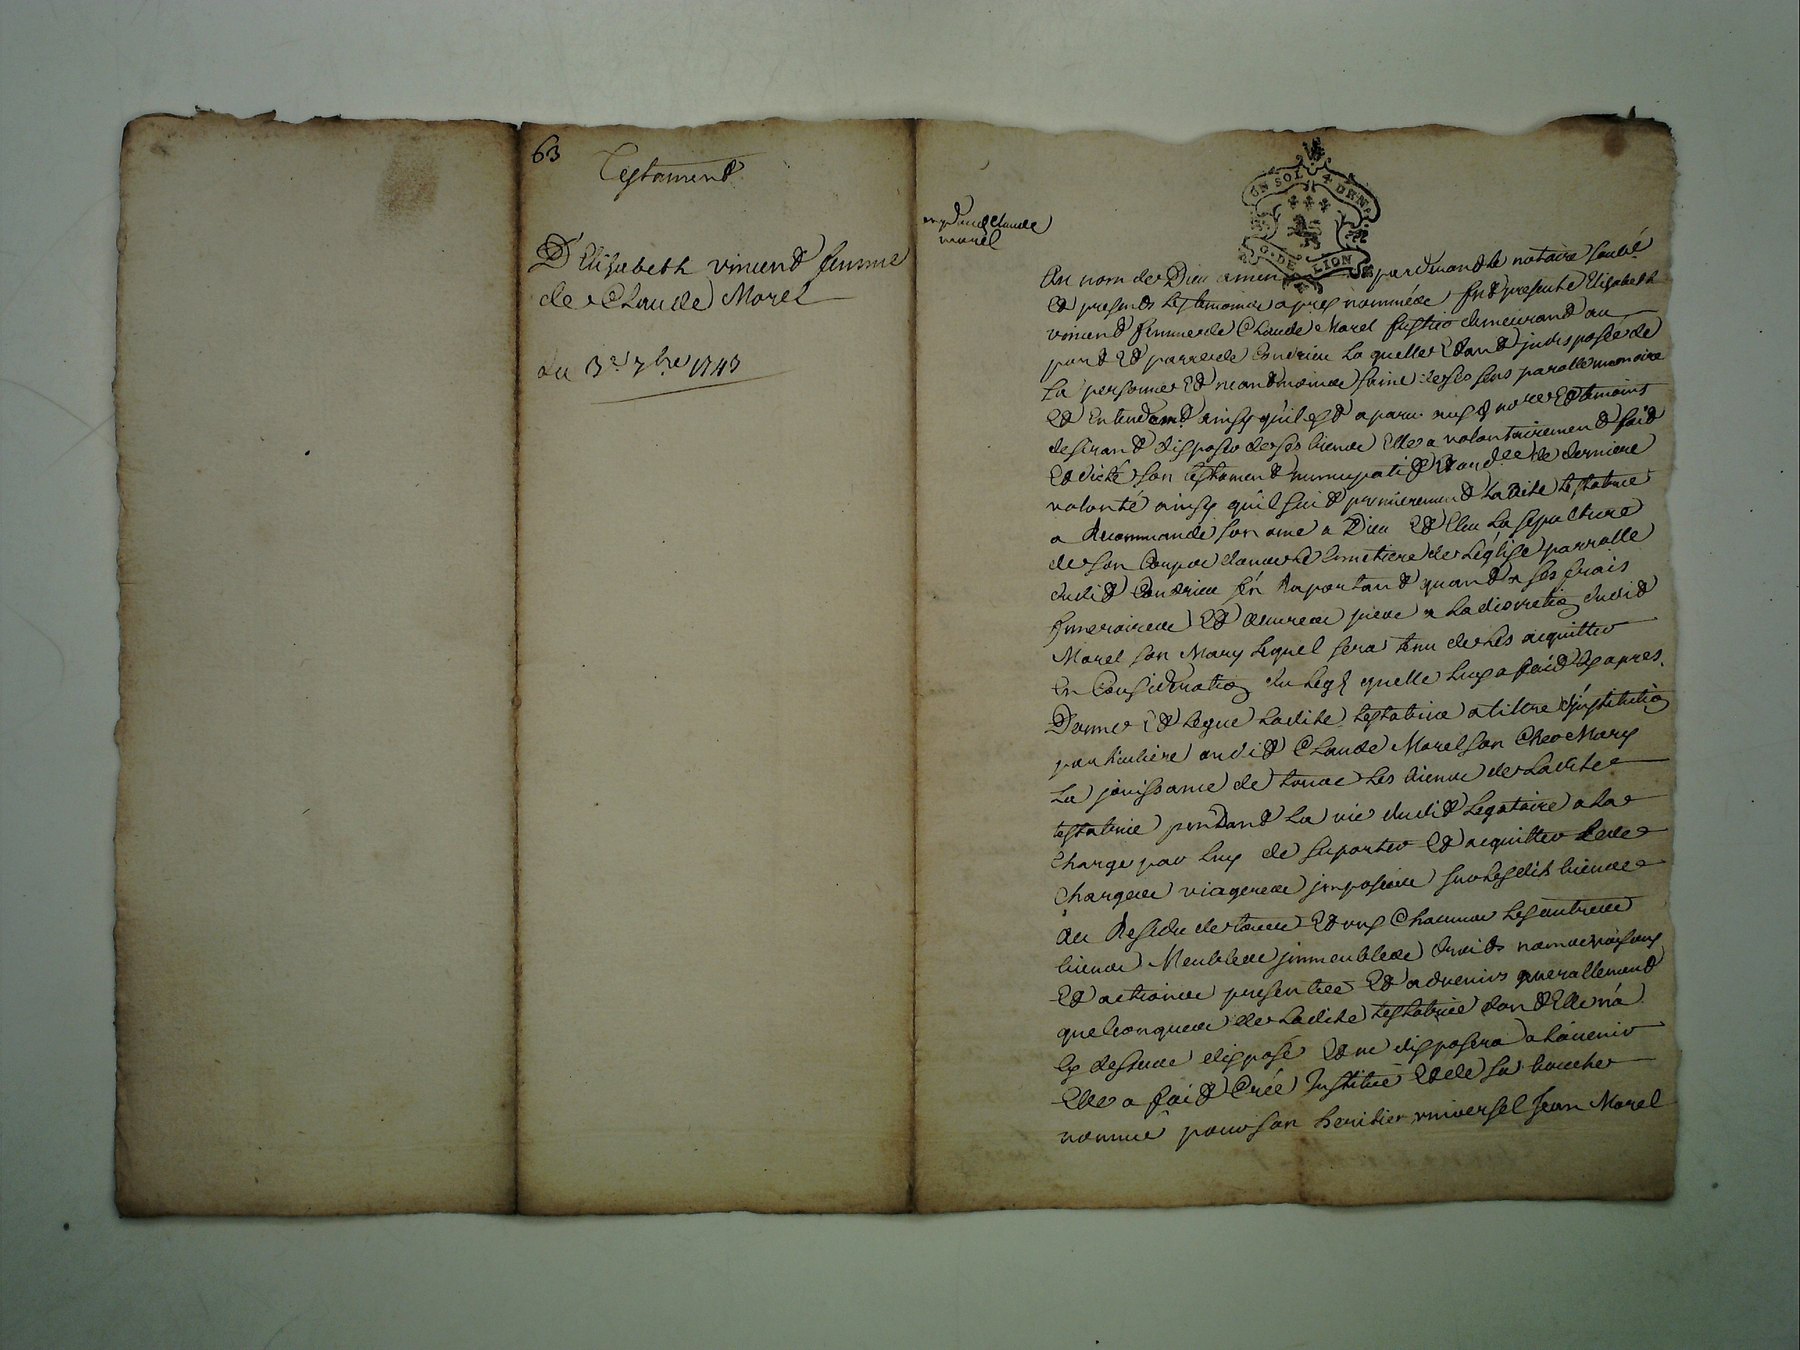 63
Testament
D'Elisabeth vincend femme
de Claude Morel
du 3e 7bre 1743
Claude
morel
UN SOL 4 DEN.
G. DE LION
Au nom de Dieu amen pardevand le notaire soubé
Et presends les temoins apres nommés fut presente Elizabeth
vincend femme de Claude Morel demeurand au
pord Et parroisse Condrieu laquelle Etand indisposée de
sa personne Et neandmoins saine de ses sens parolle memoire
Et Entendemt. ainsy qu'il Est aparu aus d. nore Et temoins
desirand disposer de ses biens Elle a volontairement faid
Et dicté son testamend nuncupatif Et ord.ce de derniere
volonté ainsy qu'il suid premieremend Ladite testatrice
a recommandé son ame a Dieu Et Eleu la sepulture
de son Corps dans le Cimetiere de L'églize parrolle
dudid Condrieu s'en raportand quand a ses frais
funeraires Et œuvres pies a la discretion dudid
Morel son Mary lequel sera tenu de les acquitter
En Consideration du legs quelle luy a faid Cy apres.
Donne Et legue Ladite testatrice a tiltre d'institution
particuliere audid Claude Morel son Cher Mary
La jouissance de tous les biens de Ladite
testatrice pendand la vie dudid legataire a la
Charge par luy de suporter Et acquitter les
Charges viageres imposées sur lesdits biens
Au Residu de tous Et uns Chacuns les autres
biens Meubles immeubles droits noms raisons
Et actions presentes Et advenir generallemend
quelconques de Ladite testatrice dond Elle n'a
Cy dessus disposé Et ne disposera a l'avenir
Elle a faid Créé Institué Et de sa bouche
nommé pour son heritier universel Jean Morel